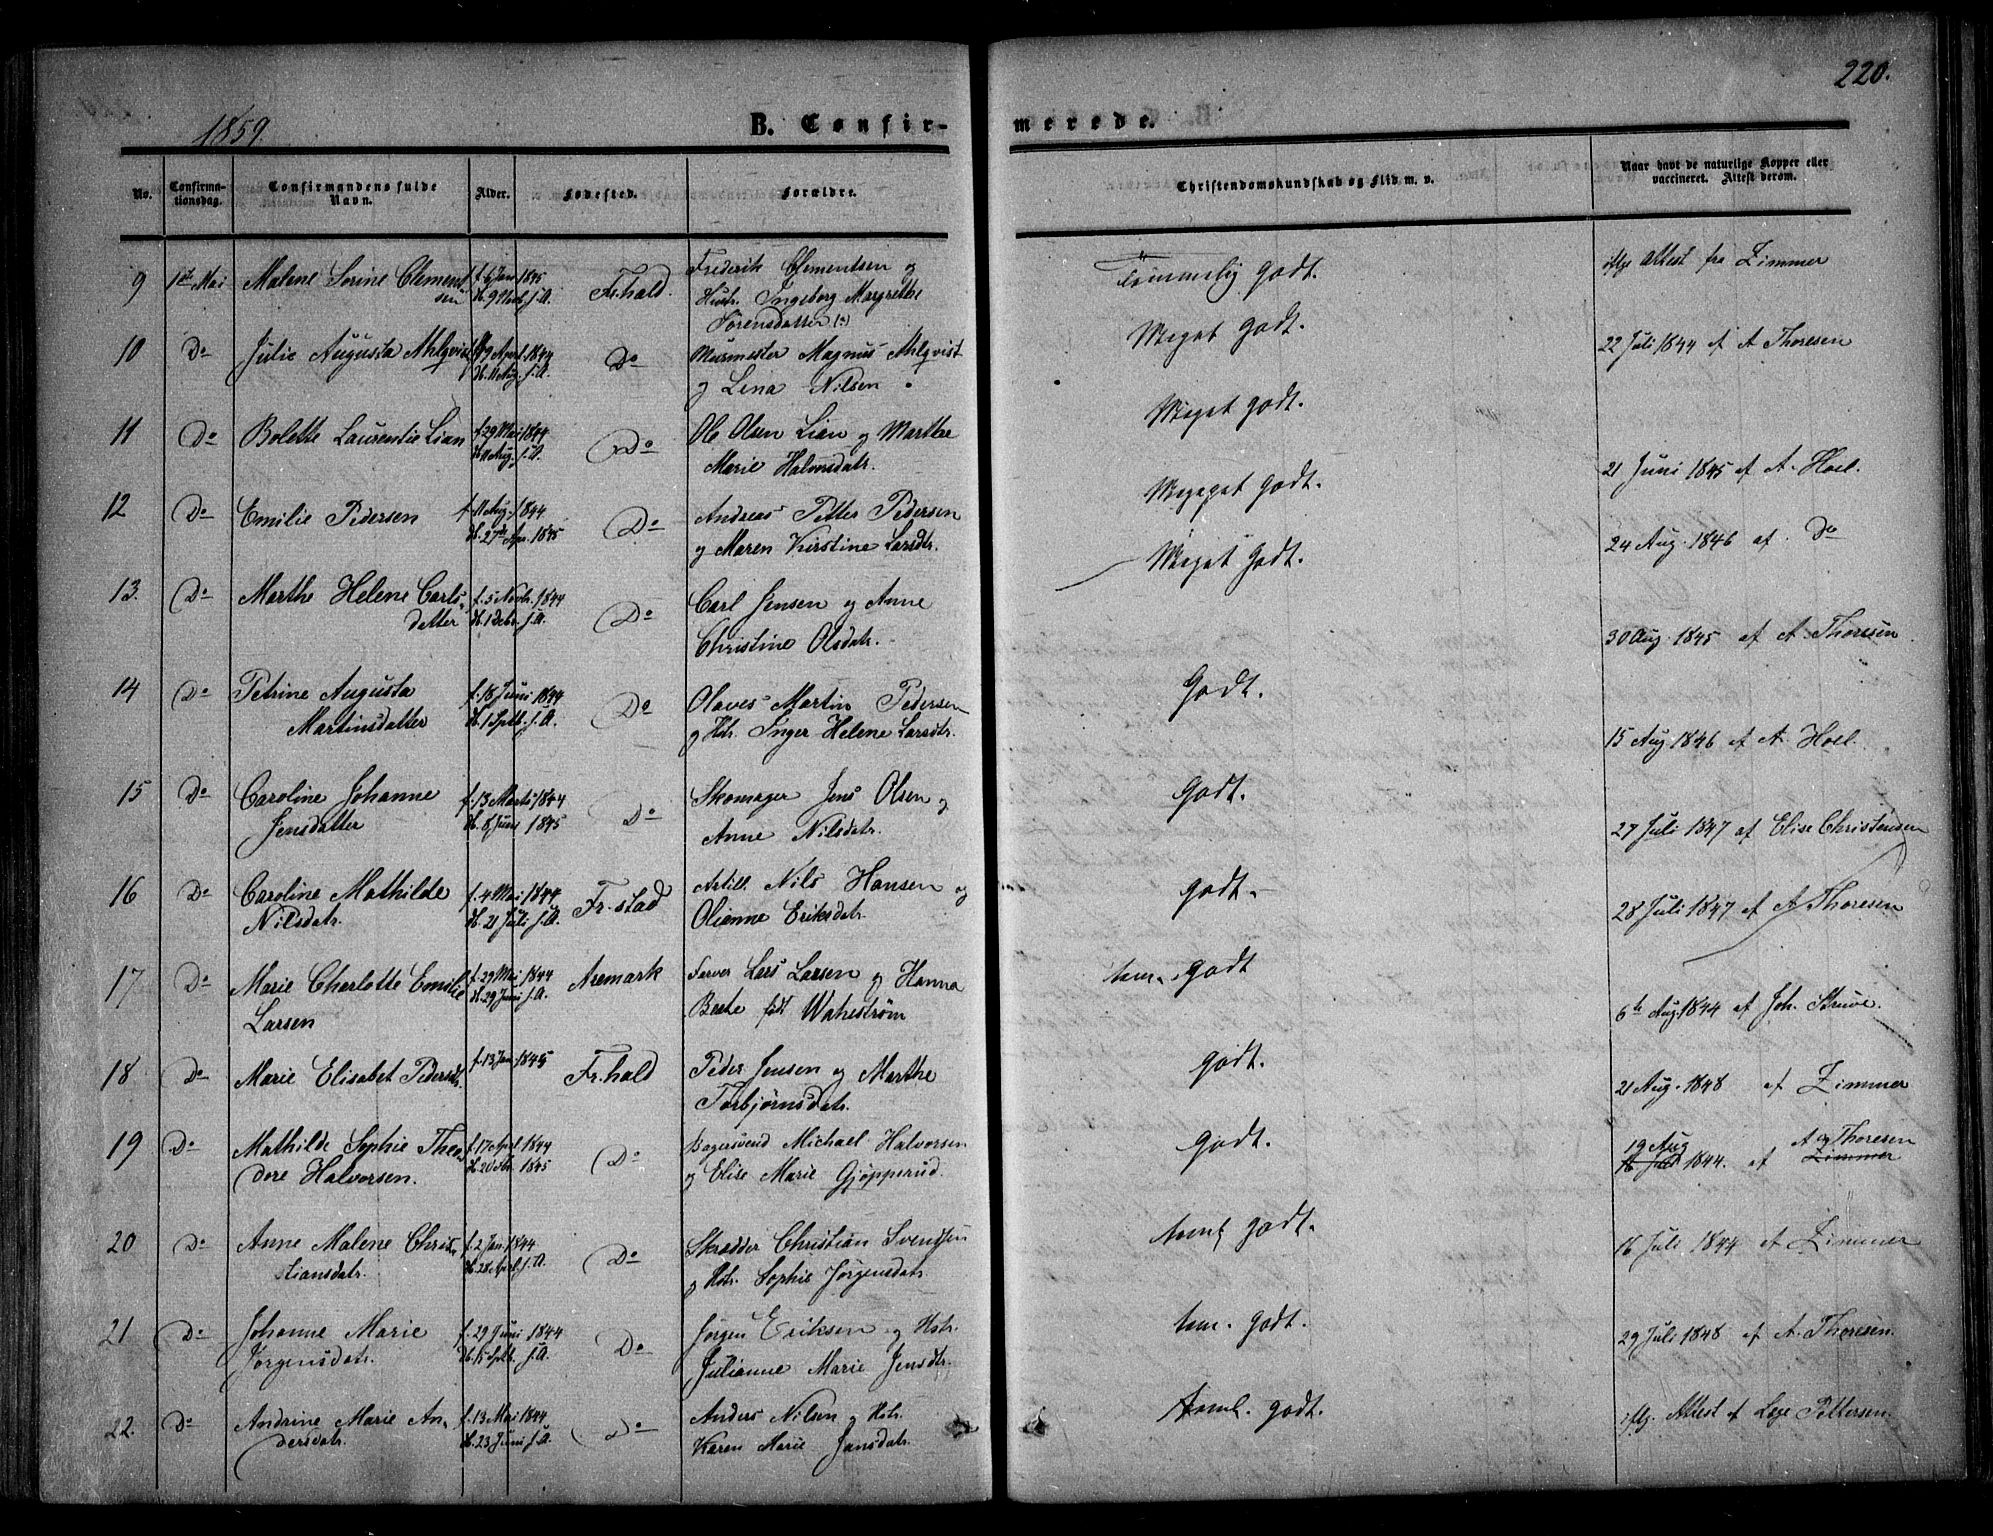 220.
1859.
B. Confir-
merede.
No.
Confirma-
tionsdag.
Confirmandens fulde
Navn.
Alder.
Fødested.
Forældre.
Christendomskundskab og Flid m. v.
Naar havt de naturlige Kopper eller
vaccineret. Attest derom.
9 1ste Mai Malene Sorine Clement
sen
f. 6 Jan 1845
Fr.hald.
Frederik Clementsen og
Hustr. Ingeborg Margrethe
Sørensdatter
Temmelig godt.
iflge Attest fra Zimmer
10 Do Julie Augusta Ahlqvist
9 April 1844
db. 11 Aug. s.A.
Do
Murmester Magnus Ahlqvist
og Lena Nilsen
Meget godt.
22 Juli 1844 af A Thoresen
11 Do Bolette Laurentie Lian
f. 29 Mai 1844
db. 11 Aug. s.A.
Do
Ole Olsen Lian og Marthe
Marie Halvorsdatr.
Meget godt.
21 Juni 1845 af A. Hoel.
12 Do Emilie Pedersen
f. 11 Aug. 1844
db. 27de Apr. 1845
Do
Andreas Petter Pedersen
og Maren Kirstine Larsdtr.
Megeget godt.
24 Aug. 1846 af Do
13. Do Marthe Helene Carls-
datter
f. 5 Novbr. 1844
db. 1 Debr. s.A.
Do
Carl Jensen og Anne
Christine Olsdatr.
Meget godt.
30 Aug. 1845 af A. Thoresen
14 Do Petrine Augusta
Martinsdatter
f. 18 Juni 1844
db. 1 Sptb. s.A.
Do
Olaves Martin Pedersen
og Hstr. Inger Helene Larsdtr.
Godt.
15 Aug 1846 af A. Hoel.
15 Do Caroline Johanne
Jensdatter
f. 13 Marts 1844
db. 8 Juni 1845
Do
Skomager Jens Olsen og
Anne Nilsdatr.
Godt.
27 Juli 1847 af Elise Christensen
16 Do Caroline Mathilde
Nilsdatr.
f. 4 Mai 1844
db. 21 Juli s.A.
Fr.stad
Artill. Nils Hansen og
Olianne Eriksdatr.
Godt.
28 Juli 1847 af A Thoresen
17 Do Marie Charlotte Emilie
Larsen
f. 29 Mai 1844
db. 29 Juni s.A.
Aremark
Farver Lars Larsen og Hanna
Beate født
tem. godt
6te Aug. 1844 af Joh. Struve.
18 Do Marie Elisabet Pedersdtr.
f. 13 Jan. 1845
Fr.hald
Peder Jensen og Marthe
Torbjørnsdatr.
Godt.
21 Aug. 1848 af Zimmer
19 Do Mathilde Sophie Theo-
dore Halvorsen.
f. 17 April 1844
1845
Do
Bagersvend Michael Halvorsen
og Elise Marie Gjøpperud.
Godt.
19 Aug A Thoresen
16 Juli 1844. af Zimmer
20 Do Anne Malene Chris-
tiansdatr.
f. 2 Jan. 1844
db. 28 April s.A.
Do
Skrædder Christian Svendsen
og Hstr. Sophie Jørgensdatr.
teml godt.
16 Juli 1844 af Zimmer
21 Do Johanne Marie
Jørgensdatr.
f. 29 Juni 1844
db. 15 Sptb. s.A.
Do
Jørgen Eriksen og Hstr.
Julianne Marie Jensdtr.
tem. godt.
29 Juli 1848 af A. Thoresen.
22. Do Andrine Marie An-
dersdatr.
f. 13 Mai 1844
db. 23 Juni s.A.
Do
Anders Nilsen og Hstr.
Karen Marie Jansdatr.
teml. godt.
iflg. Attest af Pettersen.